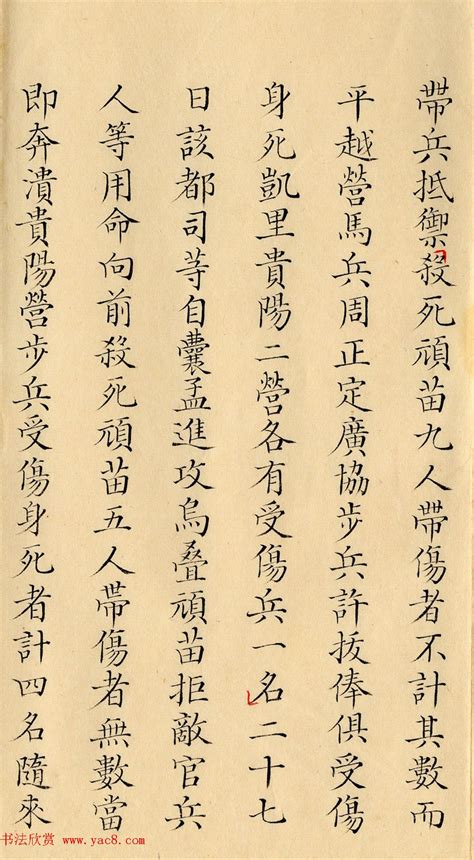 帶兵抵禦殺死頑苗九人帶傷者不計其數而
平越營馬兵周正定廣協步兵許拔俸俱受傷
身死凱里貴陽二營各有受傷兵一名二十七
日該都司等自囊孟進攻烏叠頑苗拒敵官兵
人等用命向前殺死頑苗五人帶傷者無數當
即奔潰貴陽營步兵受傷身死者計四名隨來
书法欣赏 www.yac8.com